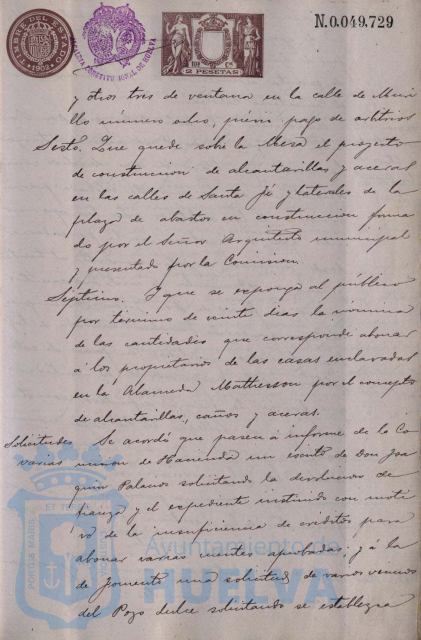 TIMBRE DEL ESTADO
1902
ALCALDIA CONSTITUCIONAL DE HUELVA
2 PESETAS
N.0.049.729
y otros tres de ventana en la calle de Muri
llo número ocho, previo pago de arbitrios
Sexto. Que quede sobre la Mesa el proyecto
de construccion de alcantarillas y aceras
en las calles de Santa Fé y laterales de la
plaza de abastos en construccion forma
do por el Señor Arquitecto municipal
y presentado por la Comision.
Séptimo. Y que se exponga al público
por término de veinte dias la nómina
de las cantidades que corresponde abonar
á los propietarios de las casas enclavadas
en la Alameda Matherson por el concepto
de alcantarillas, caños y aceras.
Solicitudes Se acordó que pasen á informe de la Co
varias mision de Hacienda un escrito de Don Joa
quin Palacios solicitando la devolucion de
fianza y el expediente instruido con moti
vo de la insuficiencia de créditos para
abonar varias aprobadas; y á la
de Fomento una solicitud de varios vecinos
del Pozo dulce solicitando se establezca
PORTUS MARIS ET TERRÆ CUSTODIA
Ayuntamiento de
HUELVA